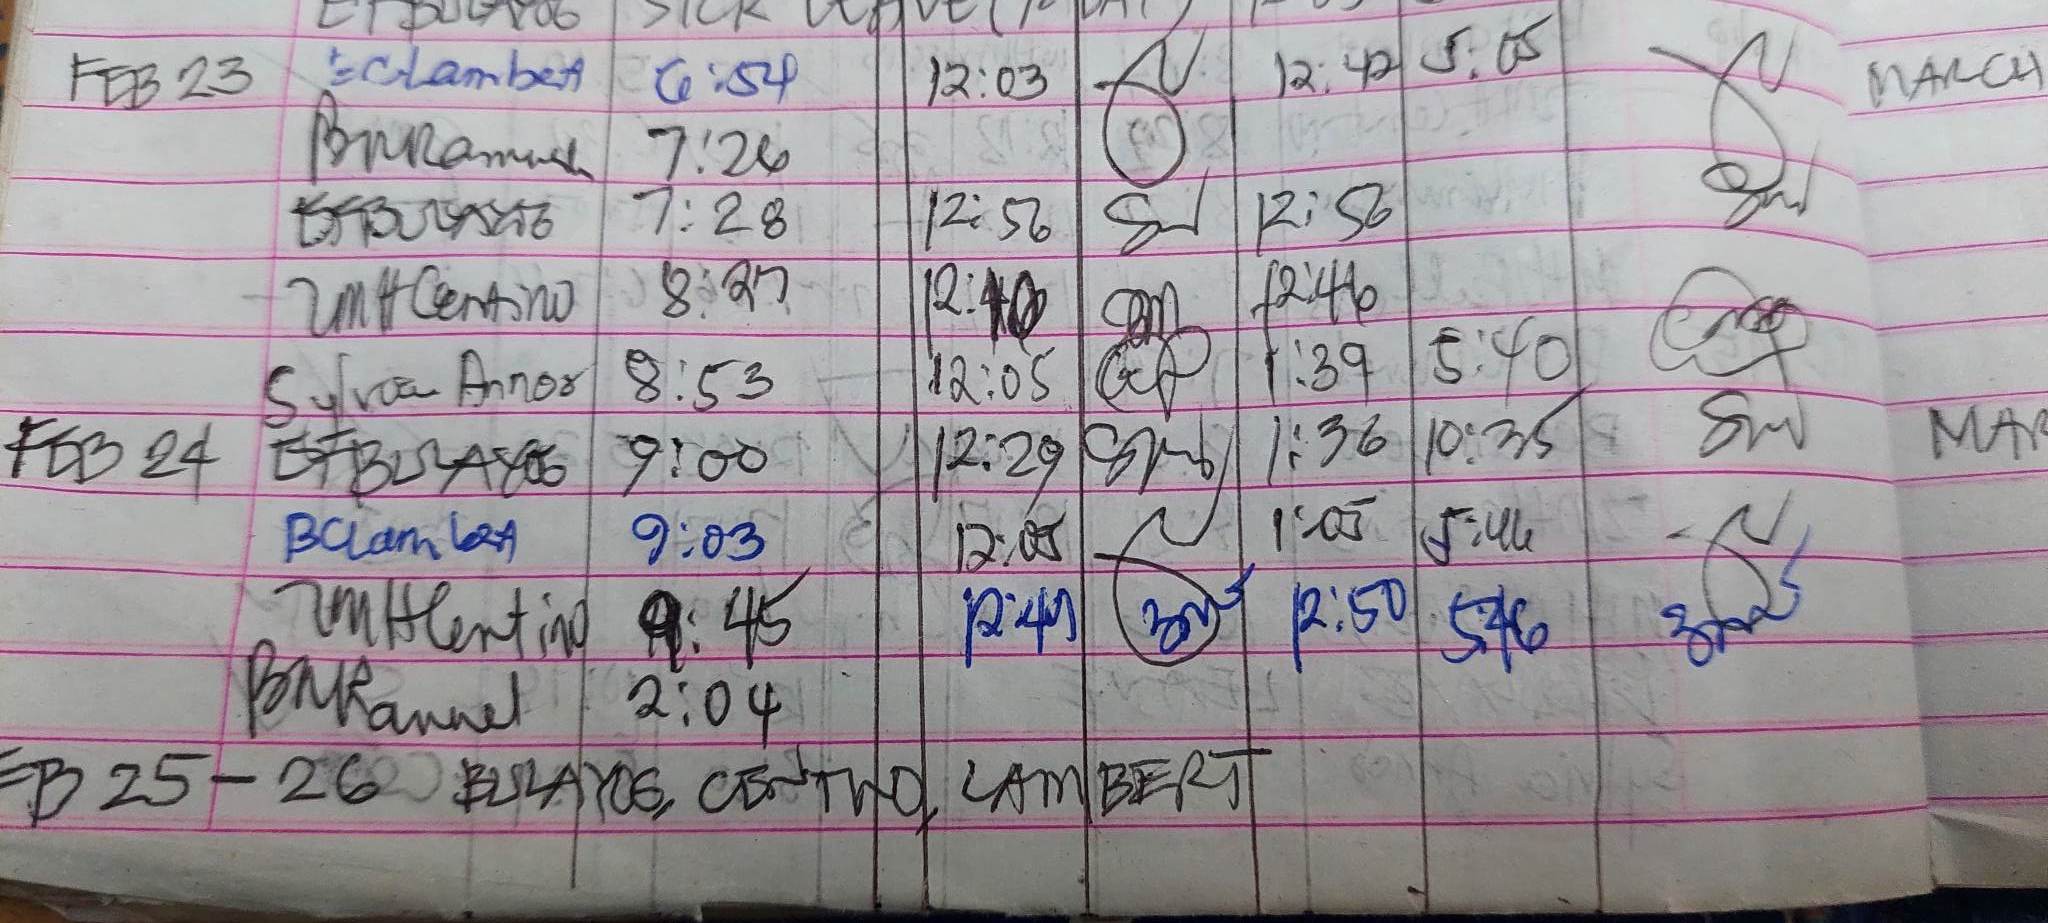 EFBULAYOG SICK LEAVE (1 DAY)
FEB 23 BClambert 6:54 12:03 12:42 5:05 MARCH
BNRammel 7:26
EFBULAYOG 7:28 12:56 12:56
Centino 8:27 12:46
Sylvan Annor 8:53 12:05 1:39 5:40
FEB 24 EFBULAYOG 9:00 12:29 1:36 10:35 MAR
BClambert 9:03 12:05 1:05 5:46
Centino 9:45 12:47 12:50 5:46
BNRammel 2:04
FEB 25-26 BULAYOG, CENTINO, LAMBERT